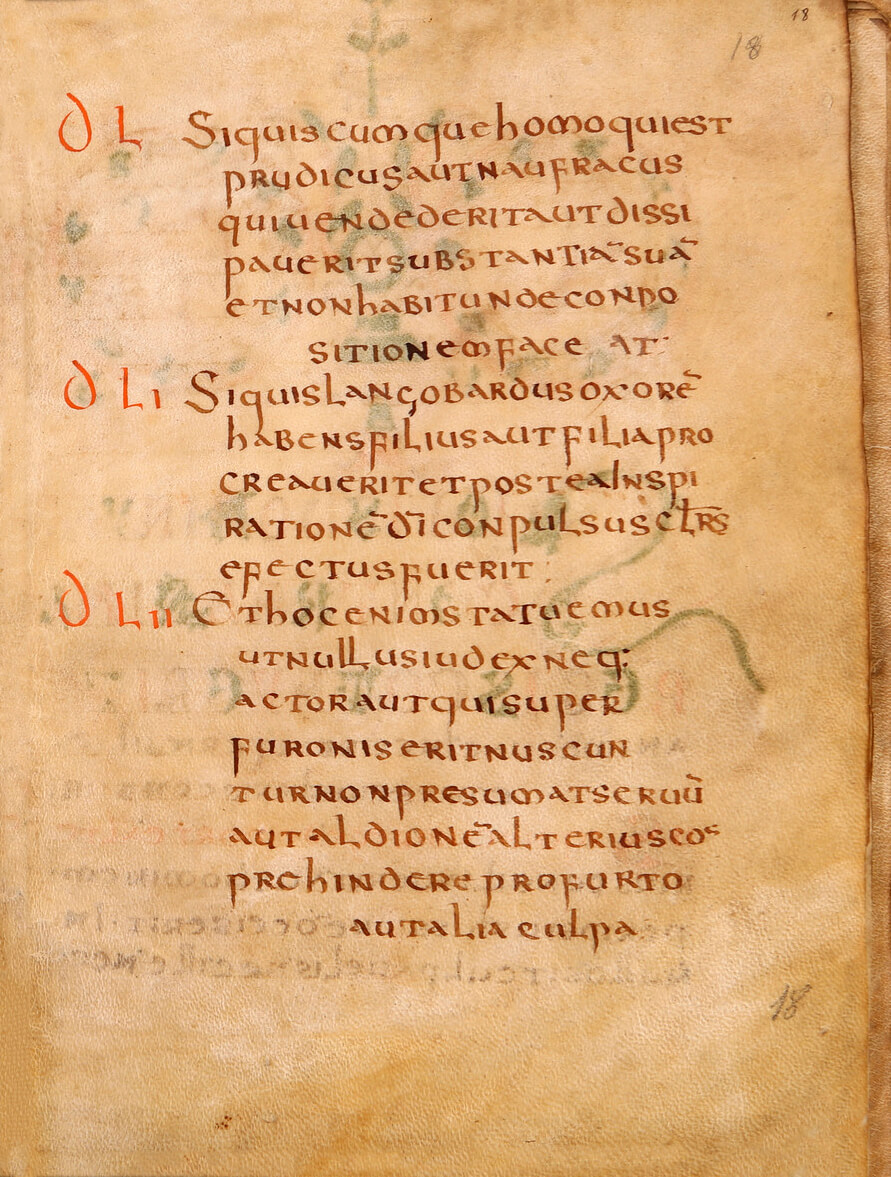 18
18
δ L Siquiscumquehomoquiest
prudicusautnaufracus
quiuendederitautdissi
paueritsubstantiā suā
etnonhabitundeconpo
sitionemface at:
δ LI Siquislangobardusoxorē
habensfiliusautfiliapro
creaueritetposteainspi
rationē dī conpulsusclr̄s
efectusfuerit:
δ LII Ethocenimstatuemus
utnullusiudexneq:
actorautquisuper
furoniseritnuscun
turnonpresumatseruū
autaldionē alteriuscos
prehindereprofurto
autalia culpa
18